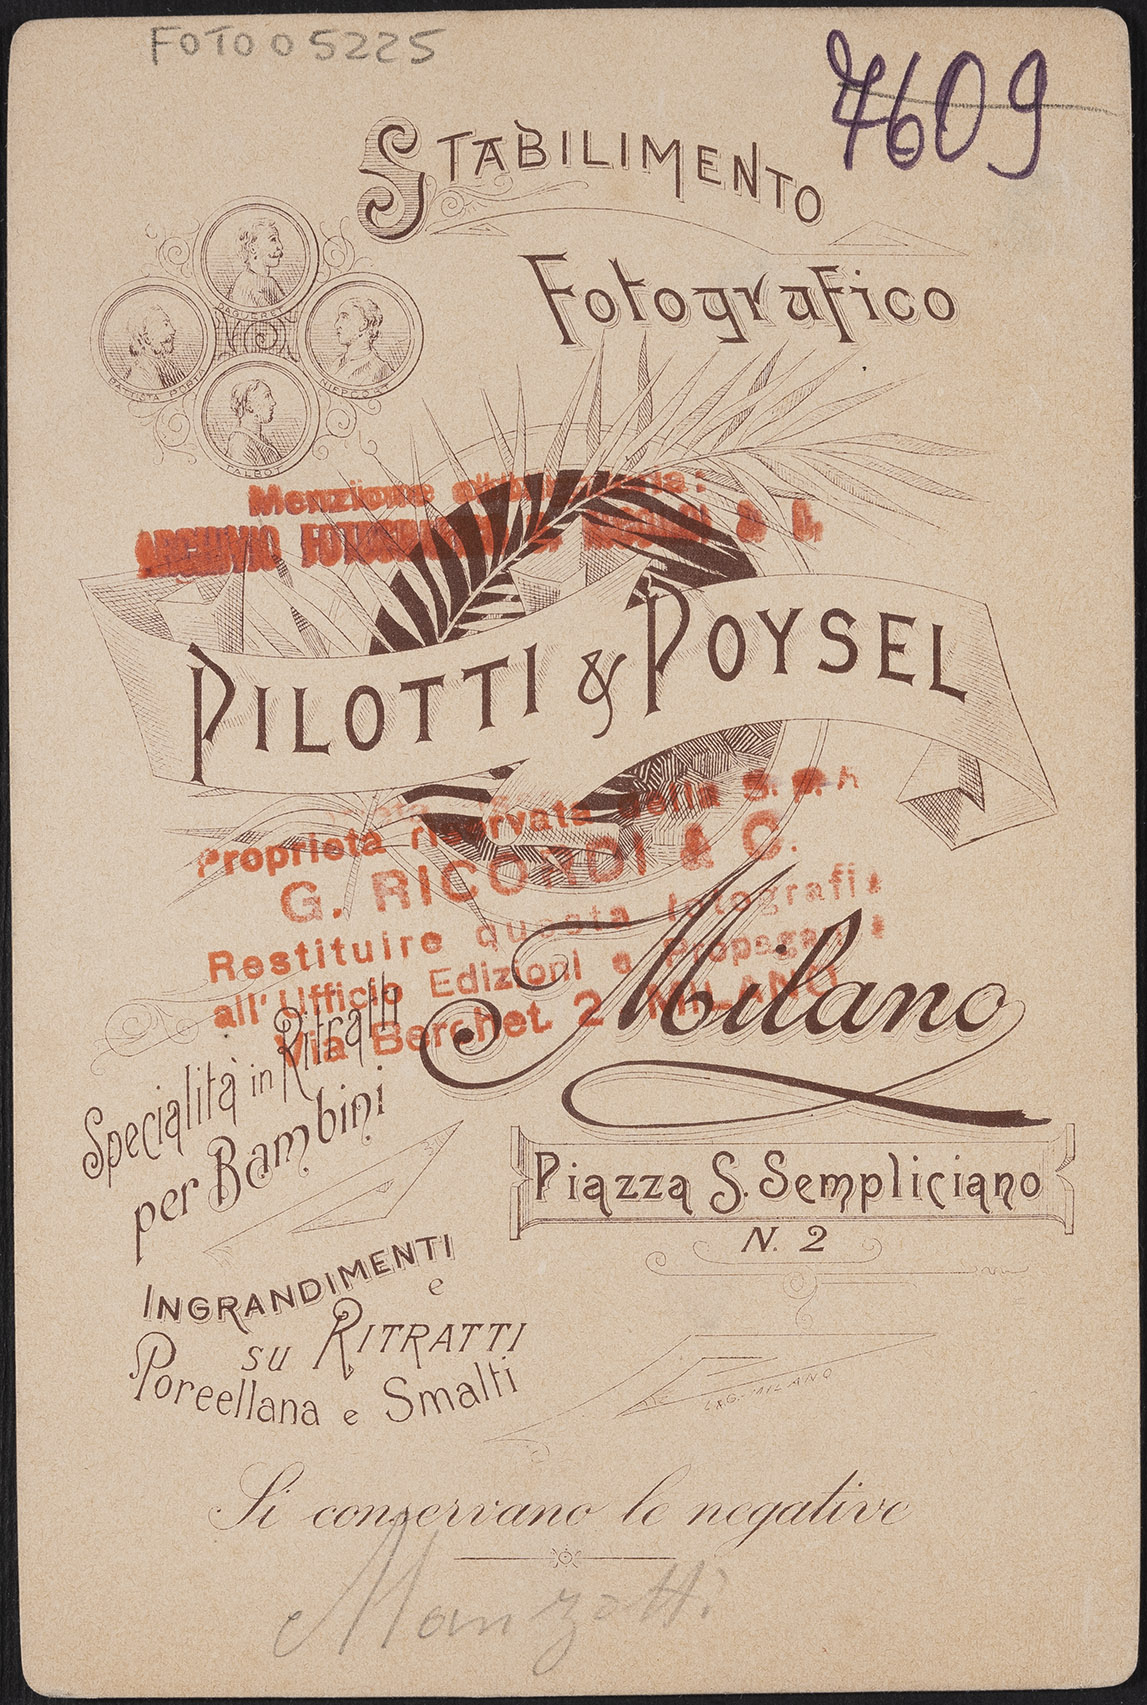 FOTO 05225
7609
STABILIMENTO
Fotografico
DAGUERRE
BATTISTA PORTA
NIEPCE
TALBOT
Menzione obbligatoria:
ARCHIVIO FOTOGRAFICO G. RICORDI & C.
PILOTTI & POYSEL
Proprietà riservata della S.p.A
G. RICORDI & C.
Restituire questa fotografia
all'Ufficio Edizioni e Propaganda
Via Berchet. 2 MILANO
Milano
Specialità in Ritratti
per Bambini
Piazza S. Sempliciano
N. 2
INGRANDIMENTI
e
su RITRATTI
Porcellana e Smalti
MILANO
Si conservano le negative
Manzotti